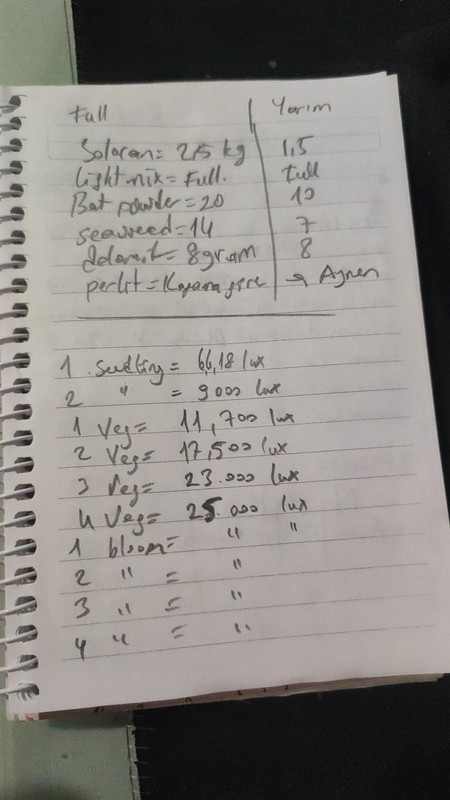 Full | Yarım
Solacan = 2,5 kg | 1,5
Lightmix = Full. | Full
Bat powder = 20 | 10
seaweed = 14 | 7
dolomit = 8 gram | 8
perlit = göre | → Aynen
1 seedling = 66,18 lux
2 " = 9000 lux
1 Veg = 11,700 lux
2 Veg = 17,500 lux
3 Veg = 23.000 lux
4 Veg = 25.000 lux
1 bloom = " "
2 " = "
3 " = "
4 " = "